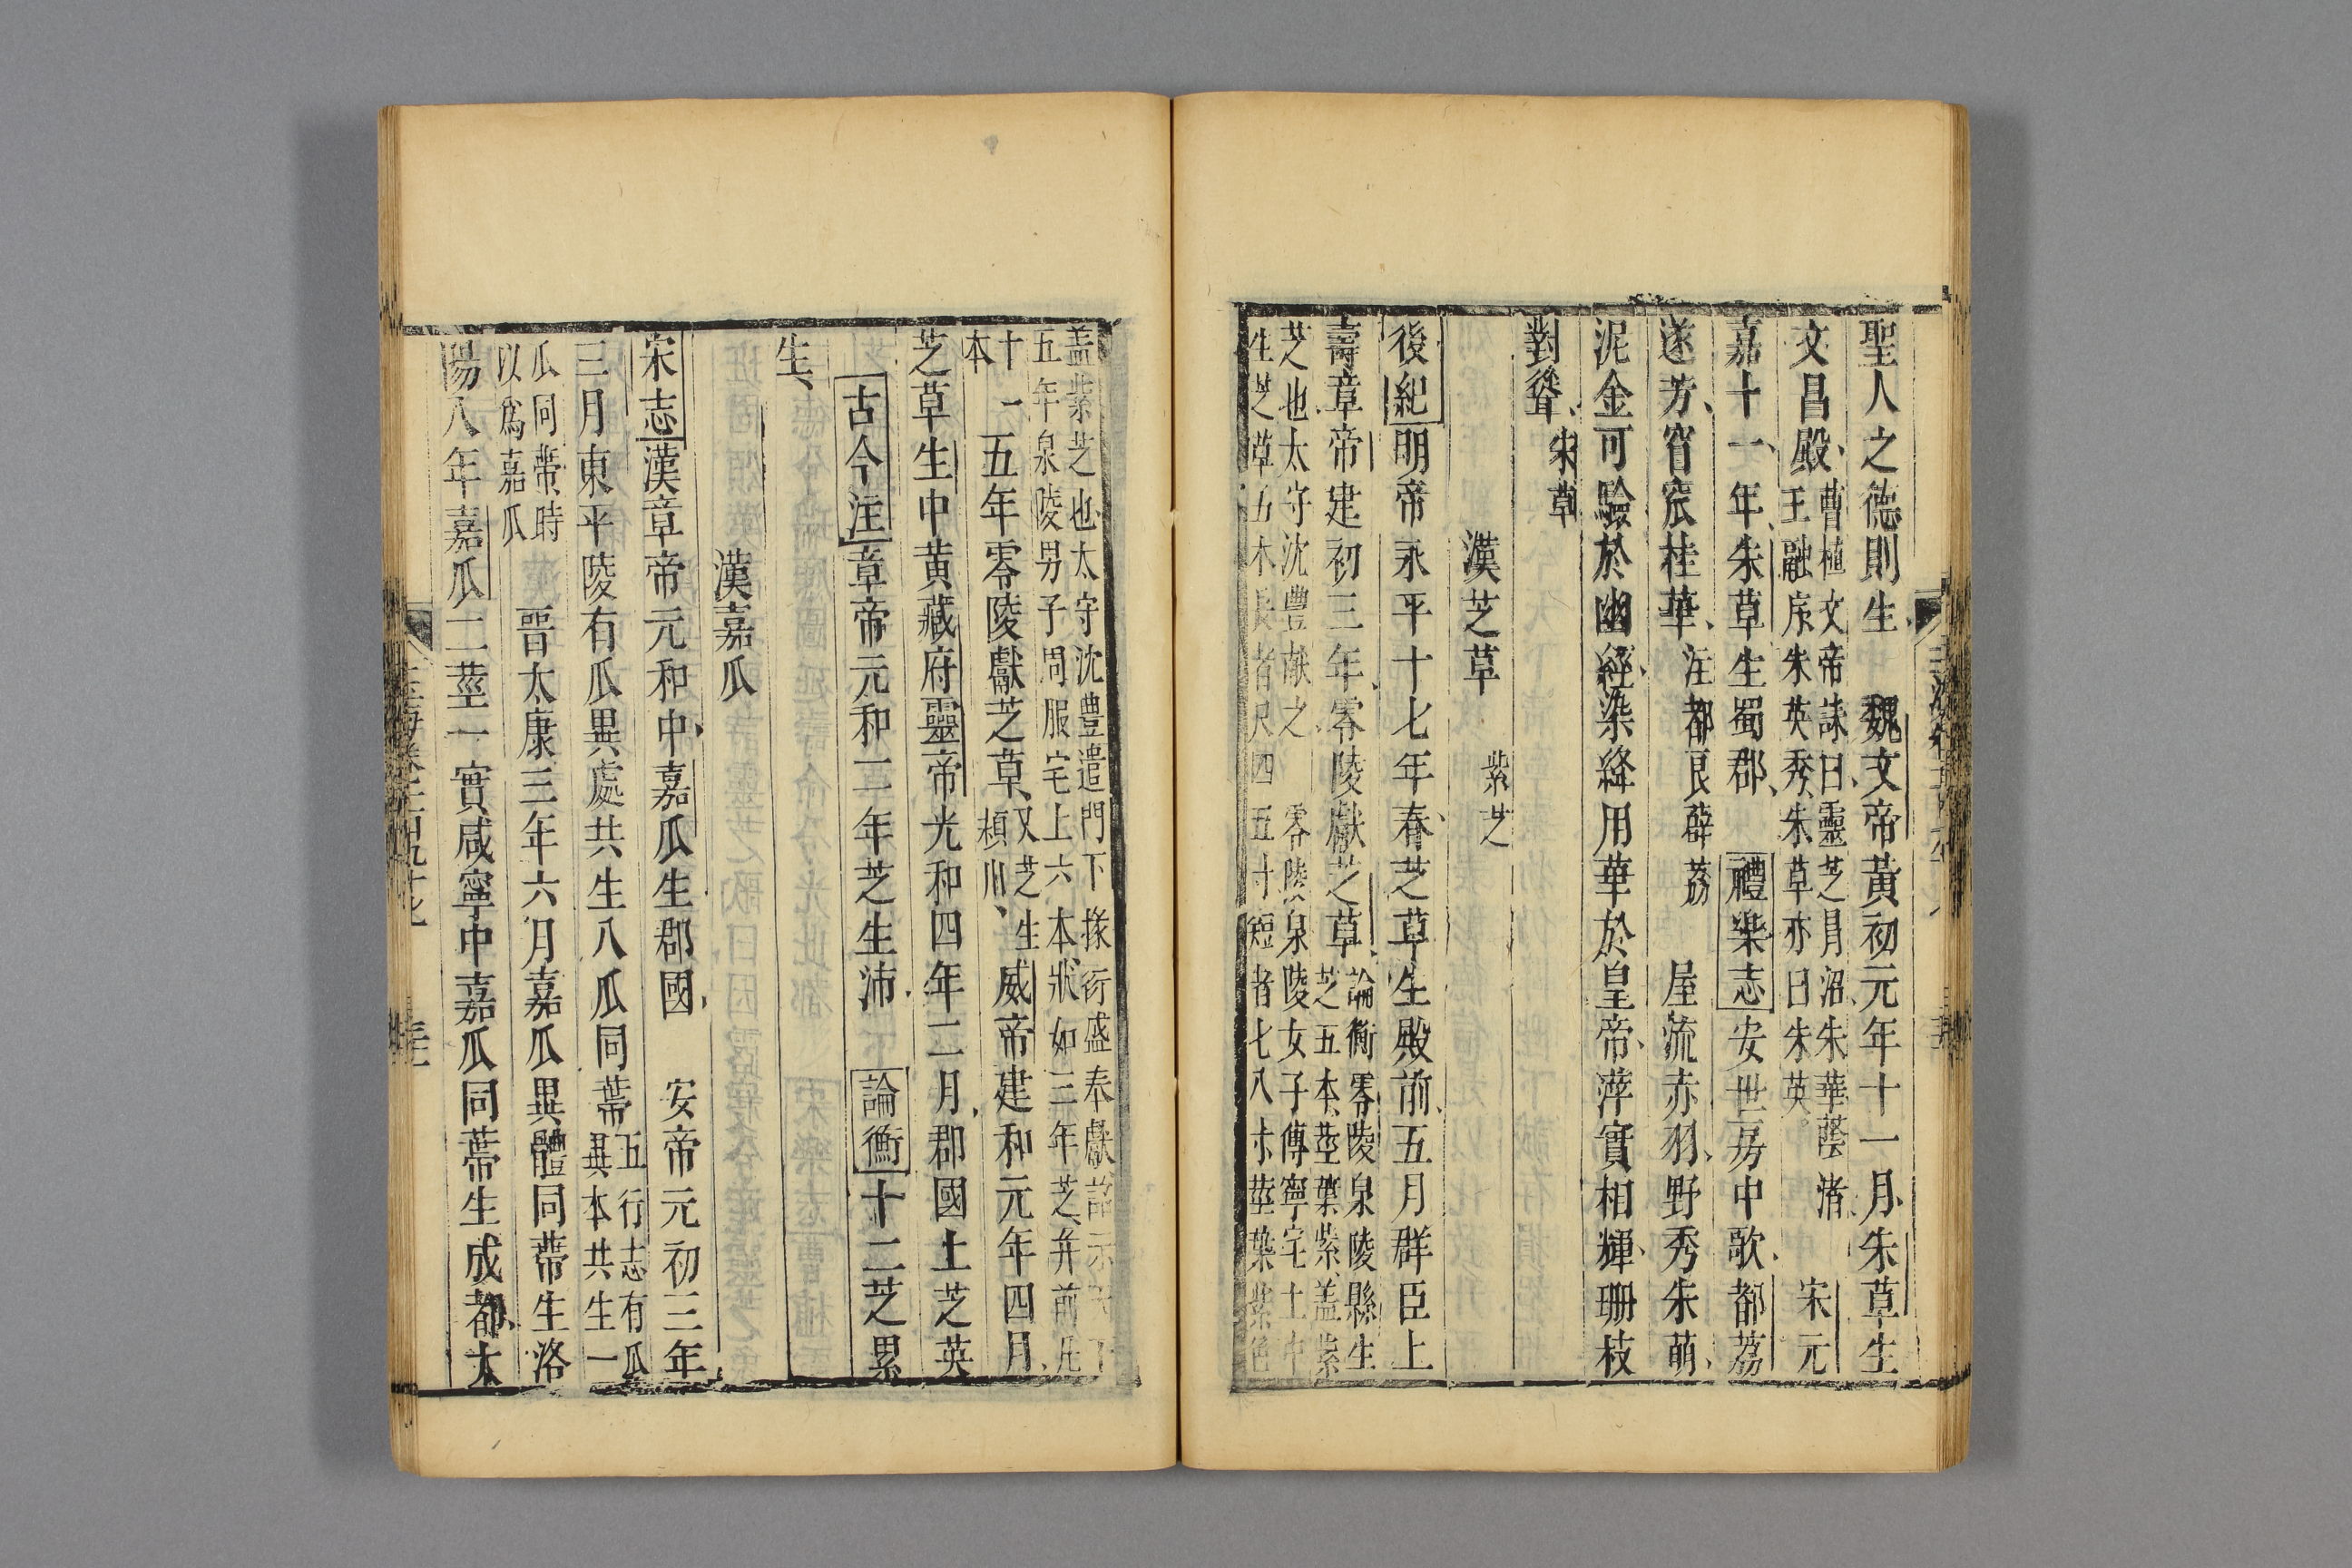 聖人之德則生 魏文帝黃初元年十一月朱草生
文昌殿 曹植文帝誄曰靈芝冐沼朱華蔭渚
王融序朱英秀朱草亦曰朱英 宋元
嘉十一年朱草生蜀郡 禮樂志安世房中歌都荔
遂芳窅窊桂華 注都良薜荔 屋流赤羽野秀朱萌
泥金可驗於幽經染絳用華於皇帝萍實相輝珊枝
對聳 朱草
漢芝草 紫芝
後紀明帝永平十七年春芝草生殿前五月群臣上
壽章帝建初三年零陵獻芝草 論衡零陵泉陵縣生
芝五本莖葉紫蓋紫
芝也太守沈豐献之 零陵泉陵女子傅寧宅土中
生芝草五本長者尺四五寸短者七八寸莖葉紫色
蓋紫芝也太守沈豊遣門下掾衍盛奉獻詔示天下
五年泉陵男子周服宅上六本狀如三年芝并前凡
十一
本 五年零陵獻芝草 又芝生
潁川 威帝建和元年四月
芝草生中黄藏府靈帝光和四年二月郡國上芝英
古今注章帝元和二年芝生沛 論衡十二芝累
生
漢嘉瓜
宋志漢章帝元和中嘉瓜生郡國 安帝元初三年
三月東平陵有瓜異處共生八瓜同蔕 五行志有瓜
異本共生一
瓜同蔕時
以爲嘉瓜 晋太康三年六月嘉瓜異體同蔕生洛
陽八年嘉瓜二莖一實咸寧中嘉瓜同蔕生成都太